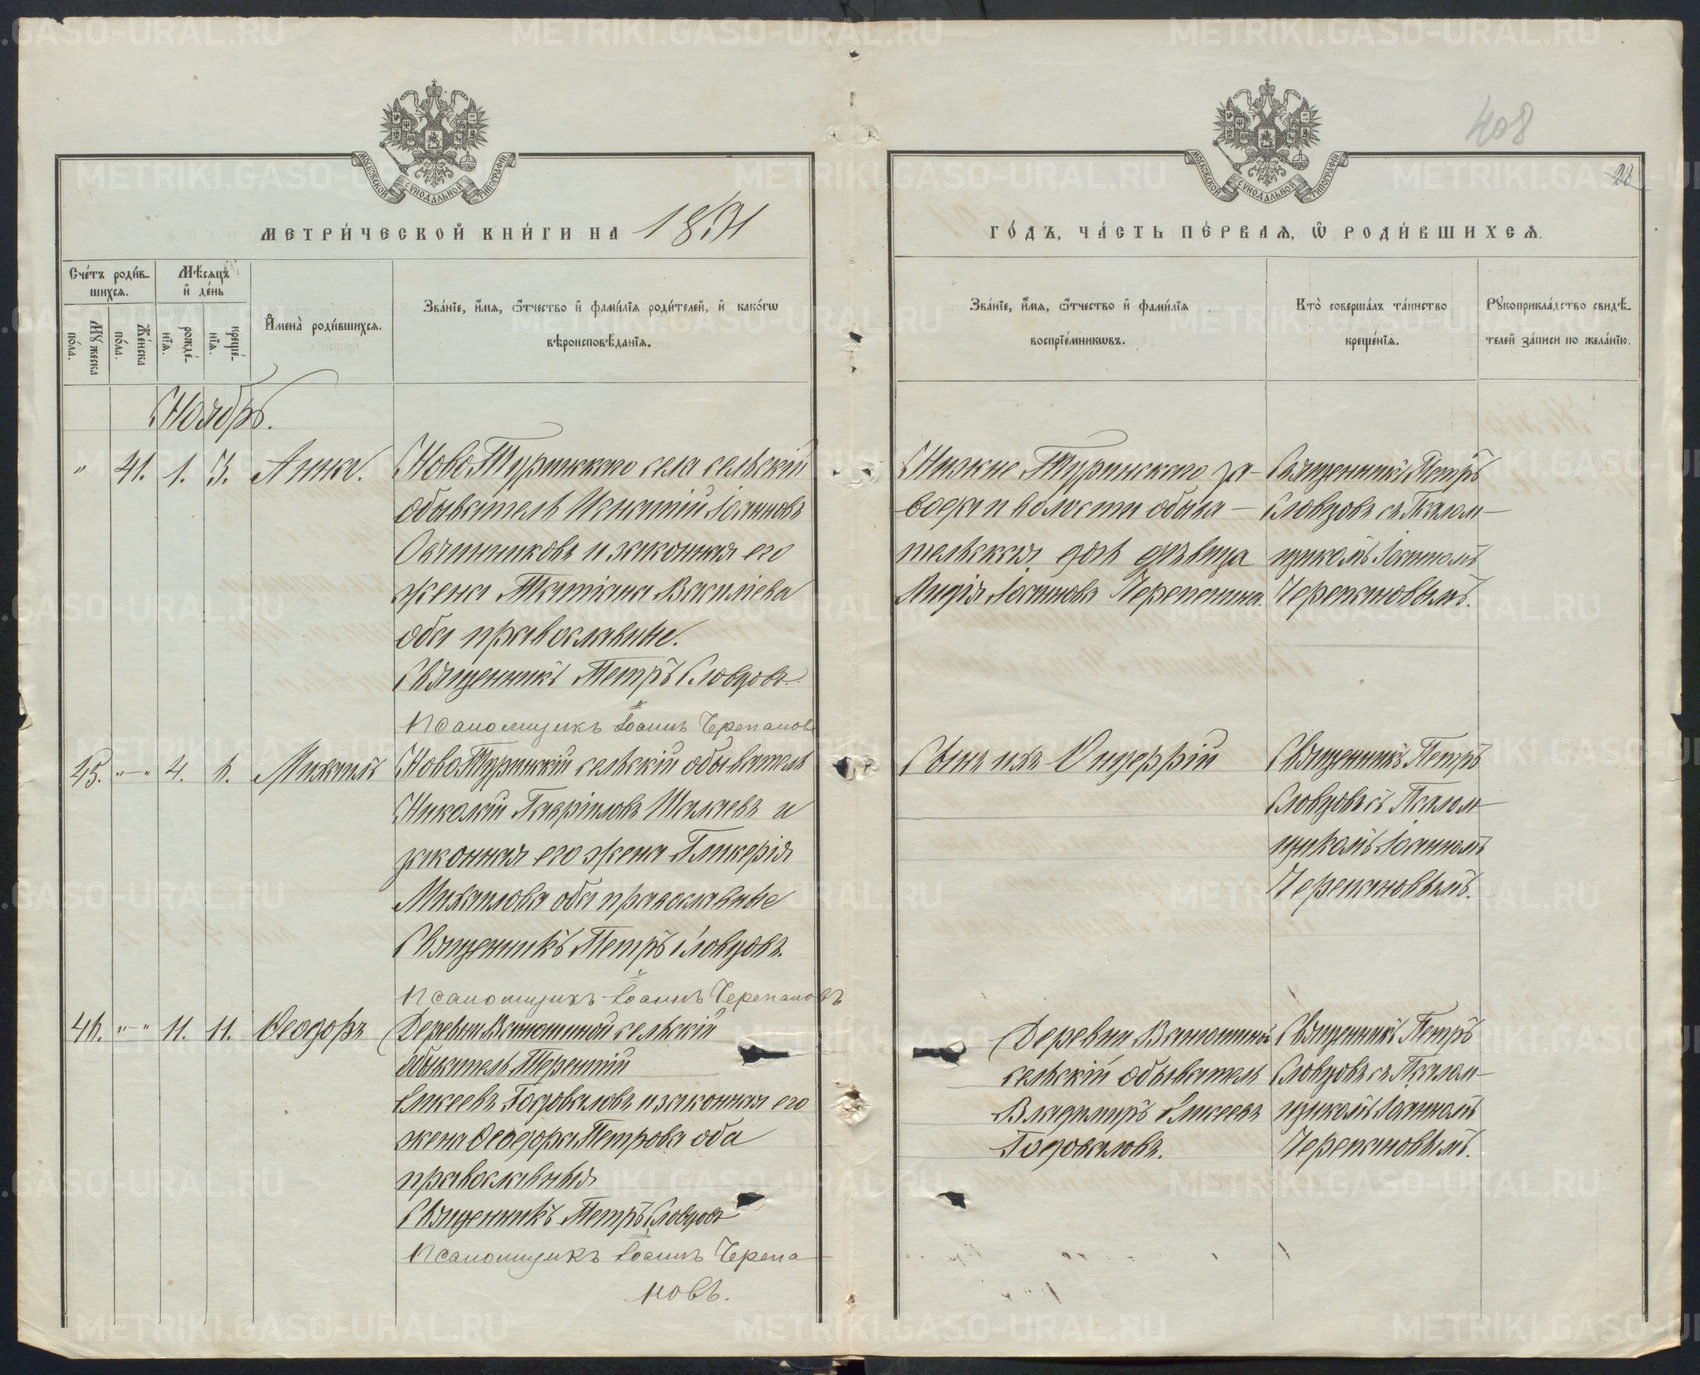 408
22
МЕТРИ́ЧЕСКОЙ КНИ́ГИ НА 1891
ГО́ДЪ, ЧА́СТЬ ПЕ́РВАЯ, Ѿ РОДИ́ВШИХСЯ.
Сче́тъ роди́в-
шихся.
Мѣ́сяцъ
и҆ де́нь
Му́жеска
по́ла.
Же́нска
по́ла.
рожде́-
нїя.
креще́-
нїя.
И҆мена̀ роди́вшихся.
Зва́нїе, и҆́мя, ѻ҆́тчество и҆ фами́лїя роди́телей, и҆ како́гѡ
вѣроисповѣ́данїя.
Зва́нїе, и҆́мя, ѻ҆́тчество и҆ фами́лїя
воспрїе́мникѡвъ.
Кто̀ соверша́лъ та́инство
креще́нїя.
Рꙋкоприкла́дство свидѣ́-
телей за́писи по жела́нїю.
Ноябрь.
" 41. 1. 3. Анна.
НовоТуринскаго села сельскій
обыватель Игнатій Іоанновъ
Овчинниковъ и законная его
жена Татіана Василіева
оба православные.
Священникъ Петръ Словцовъ
Псаломщикъ Іоаннъ Черепановъ
Нижне Туринскаго за-
вода и волости обыва-
тельская дочь девица
Лидія Іоаннова Черепанина.
Священникъ Петръ
Словцовъ съ Псалом-
щикомъ Іоанномъ
Черепановымъ.
45. "—" 4. Михаилъ
НовоТуринскій сельскій обыватель
Николай Гавріиловъ Шалаевъ и
законная его жена Гликерія
Михаилова оба православные
Священникъ Петръ Словцовъ.
Псаломщикъ Іоаннъ Черепановъ
Сынъ ихъ
Священникъ Петръ
Словцовъ съ Псалом-
щикомъ Іоанномъ
Черепановымъ.
"—" 11. 11. Ѳеодоръ
Деревни сельскій
обыватель Терентій
Елисеевъ Годоваловъ и законная его
жена Ѳеодора Петрова оба
православныя
Священникъ Петръ Словцовъ
Псаломщикъ Іоаннъ Черепа-
новъ.
Деревни
сельскій обыватель
Владиміръ Елисеевъ
Годоваловъ.
Священникъ Петръ
Словцовъ съ Псалом-
щикомъ Іоанномъ
Черепановымъ.
METRIKI.GASO-URAL.RU